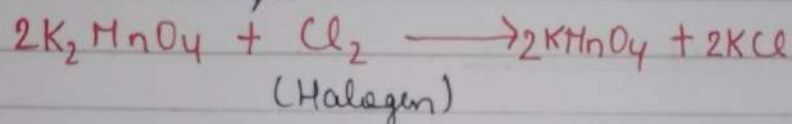 2K₂MnO₄ + Cl₂ ⟶ 2KMnO₄ + 2KCl
(Halogen)